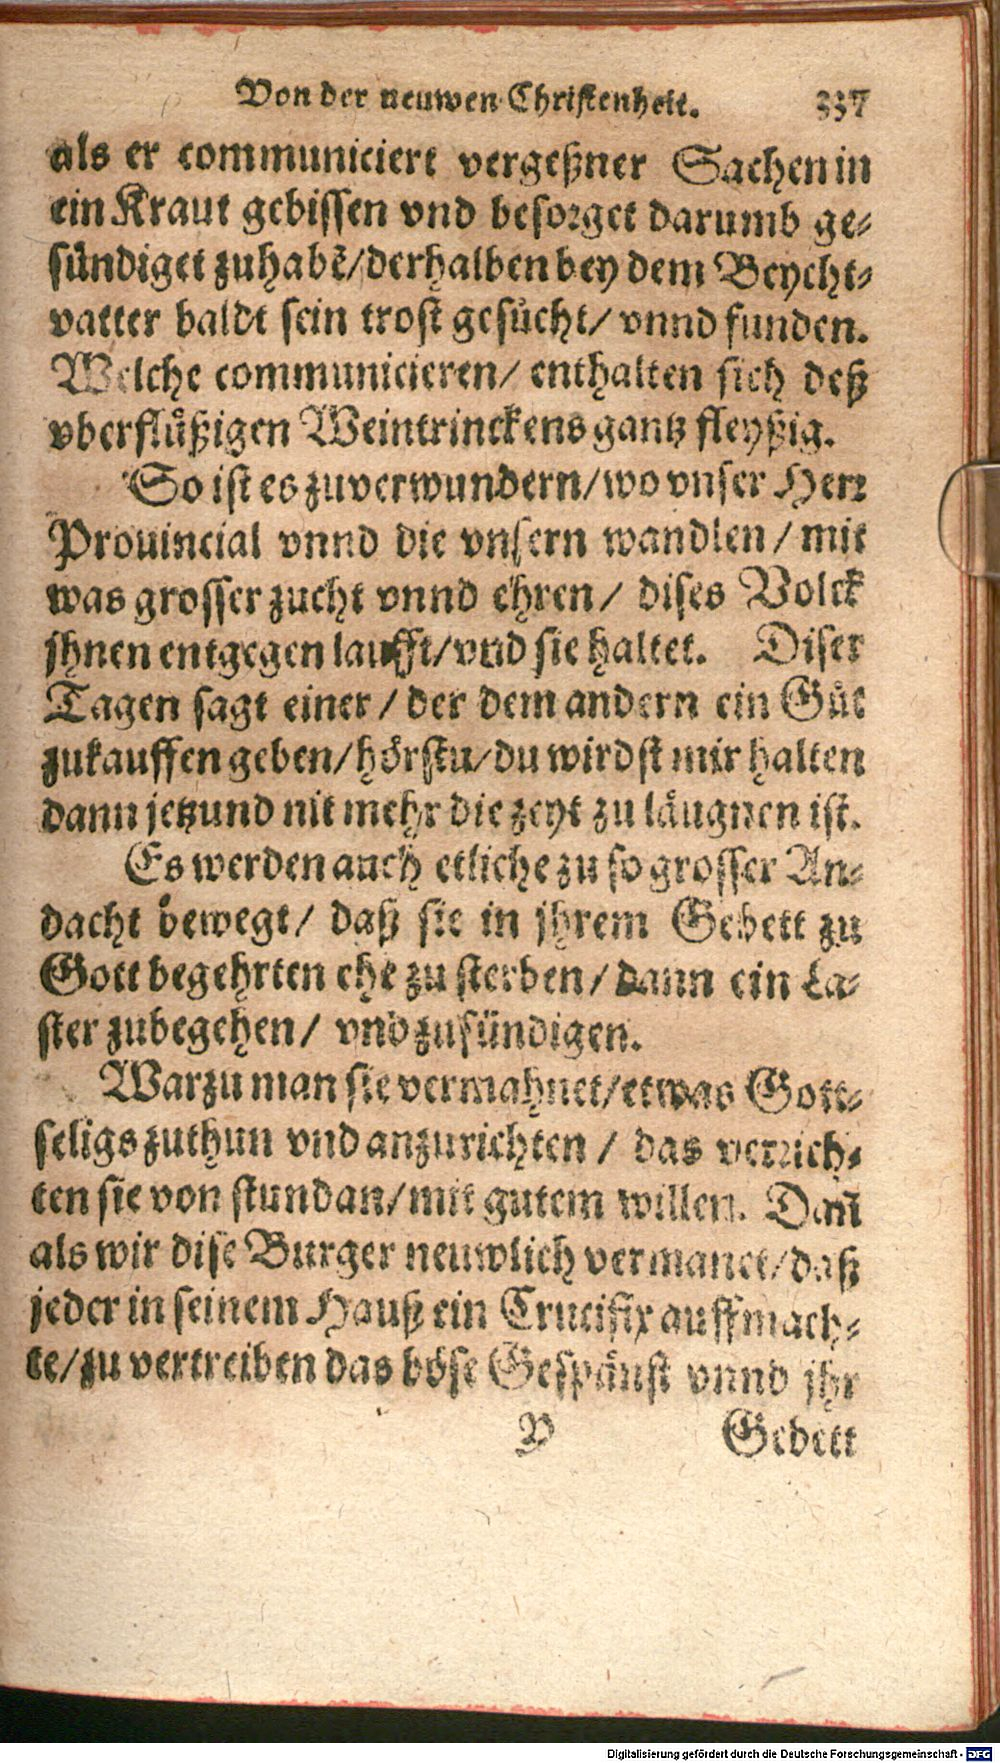 Von der neuwen Christenheit. 337
als er communiciert vergeßner Sachen in
ein Kraut gebissen vnd besorget darumb ge-
sündiget zuhabẽ/derhalben bey dem Beycht-
vatter baldt sein trost gesůcht/ vnnd funden.
Welche communicieren/ enthalten sich deß
vberflüßigen Weintrinckens gantz fleyßig.
So ist es zuverwundern/wo vnser Herr
Prouincial vnnd die vnsern wandlen/ mit
was grosser zucht vnnd ehren/ dises Volck
jhnen entgegen laufft/vnd sie haltet. Diser
Tagen sagt einer/ der dem andern ein Gůt
zukauffen geben/hörstu/du wirdst mir halten
dann jetzund nit mehr die zeyt zu läugnen ist.
Es werden auch etliche zu so grosser An-
dacht bewegt/ daß sie in jhrem Gebett zu
Gott begehrten ehe zu sterben/ dann ein La-
ster zubegehen/ vnd zusündigen.
Warzu man sie vermahnet/etwas Gott-
seligs zuthun vnd anzurichten/ das verrich-
ten sie von stundan/mit gutem willen. Dañ
als wir dise Burger neuwlich vermanet/daß
jeder in seinem Hauß ein Crucifix auffmach-
te/zu vertreiben das böse Gespänst vnnd jhr
Y Gebett
Digitalisierung gefördert durch die Deutsche Forschungsgemeinschaft - DFG